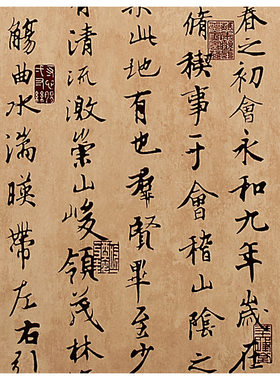 春之初會永和九年歲在
脩稧事于會稽山陰之
此地有也羣賢畢至少
有清流激崇山峻領茂林
觴曲水湍暎帶左右引